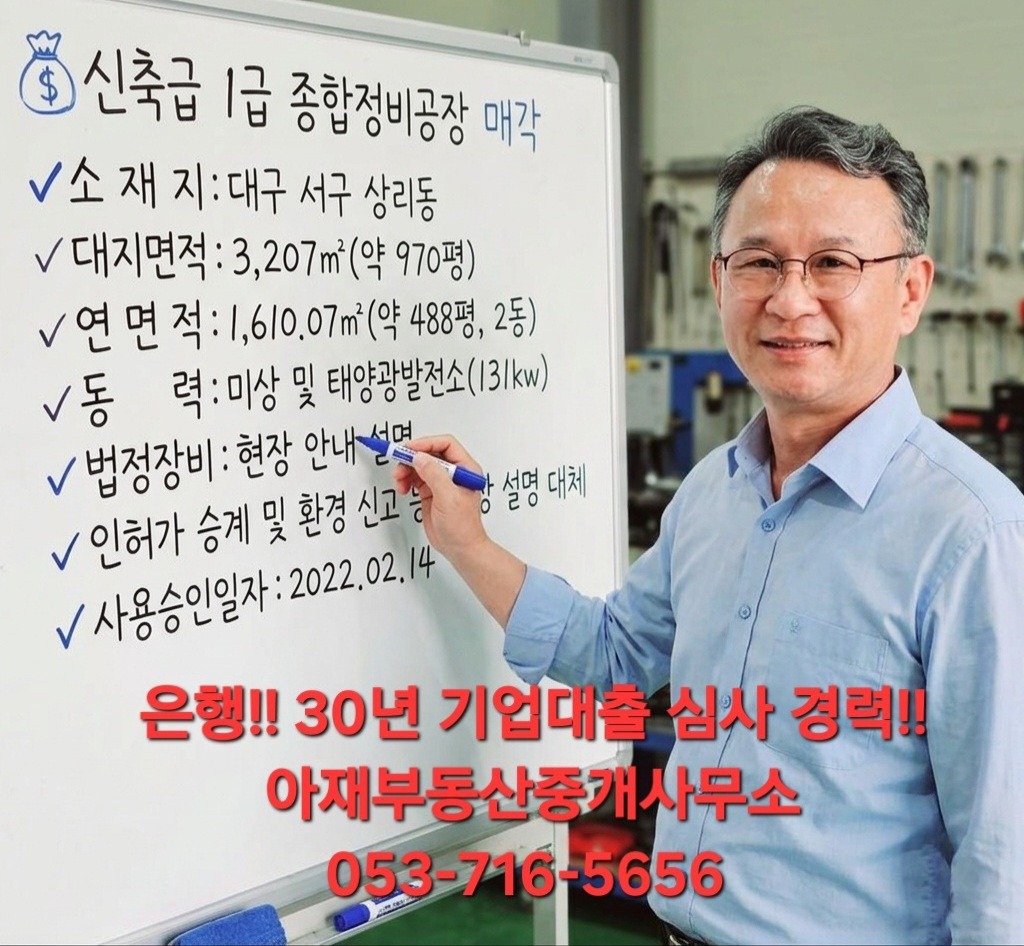 신축급 1급 종합정비공장 매각
✓ 소 재 지 : 대구 서구 상리동
✓ 대지면적 : 3,207㎡(약 970평)
✓ 연 면 적 : 1,610.07㎡(약 488평, 2동)
✓ 동 력 : 미상 및 태양광발전소(131kw)
✓ 법정장비 : 현장 안내 설명
✓ 인허가 승계 및 환경 신고 설명 대체
✓ 사용승인일자 : 2022.02.14
은행!! 30년 기업대출 심사 경력!!
아재부동산중개사무소
053-716-5656